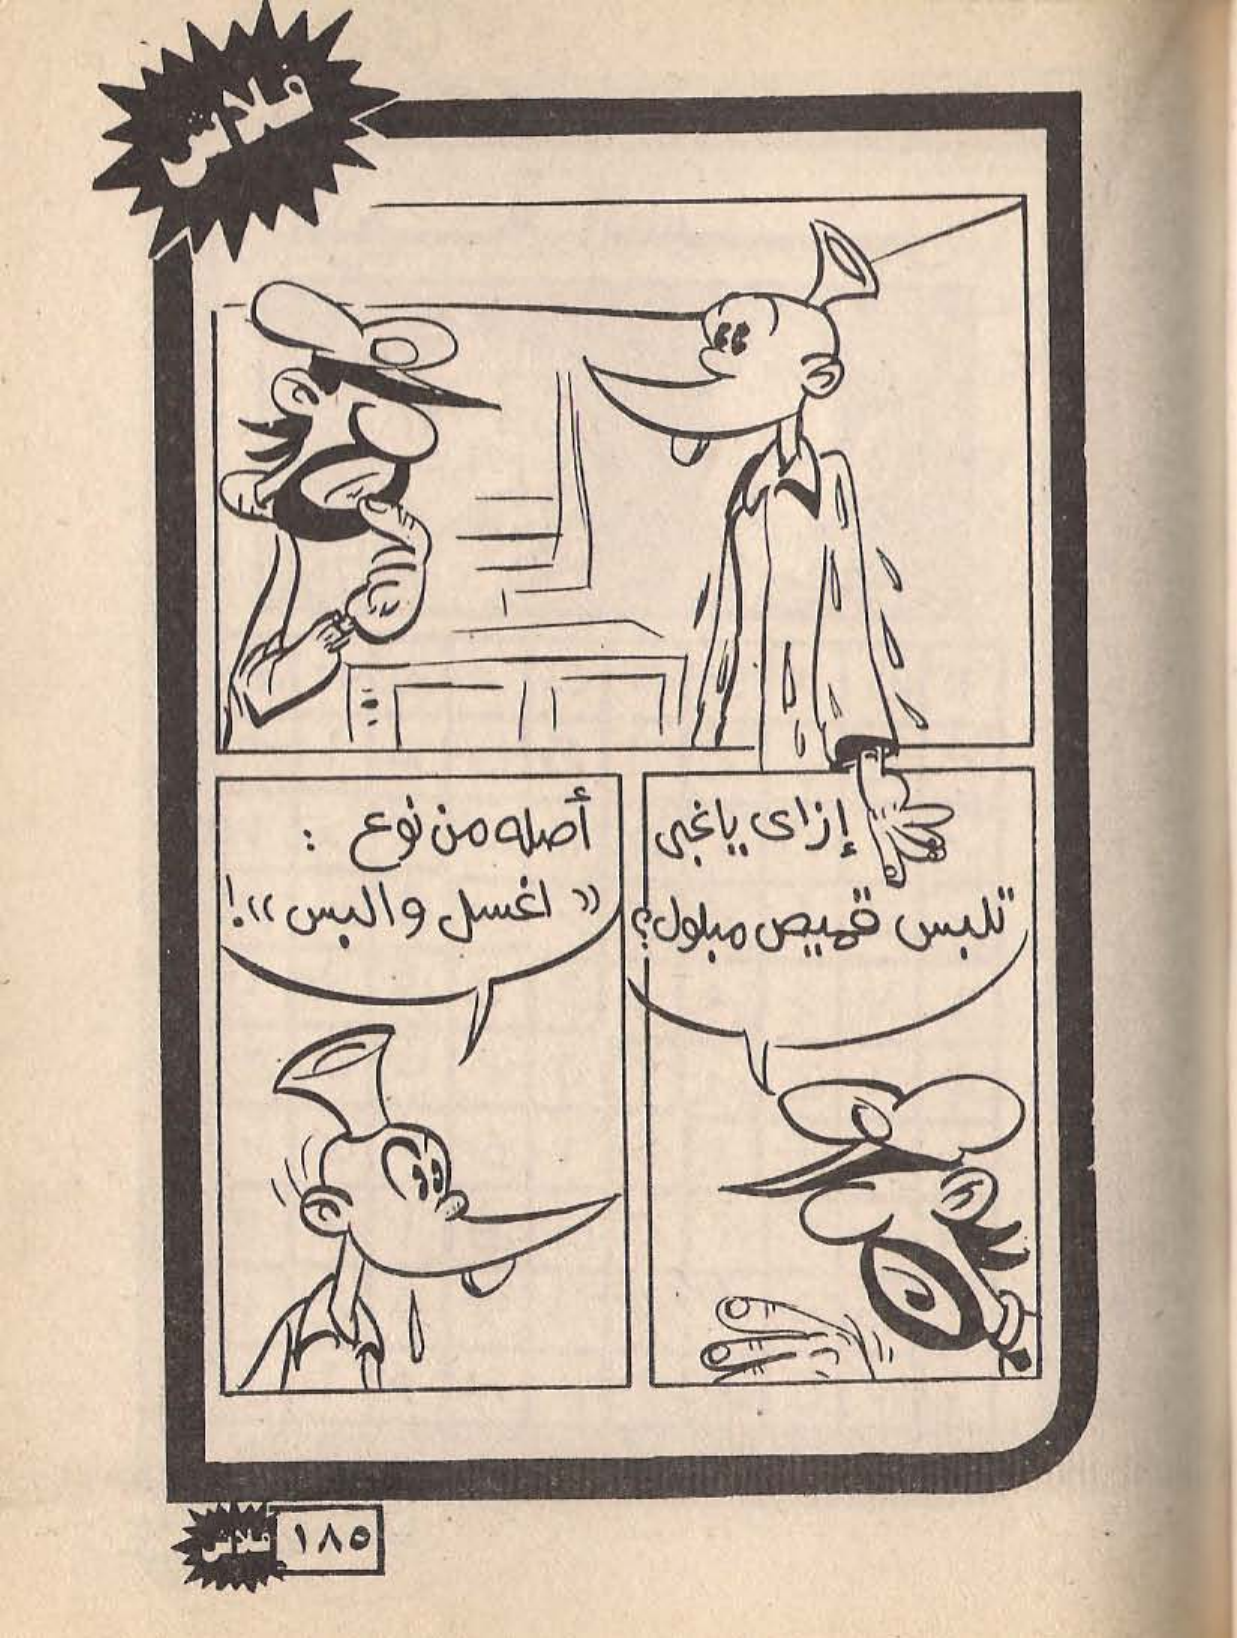 فلاش
إزاى ياغبى
تلبس قميص مبلول؟
أصله من نوع :
« اغسل والبس »!
فلاش ١٨٥